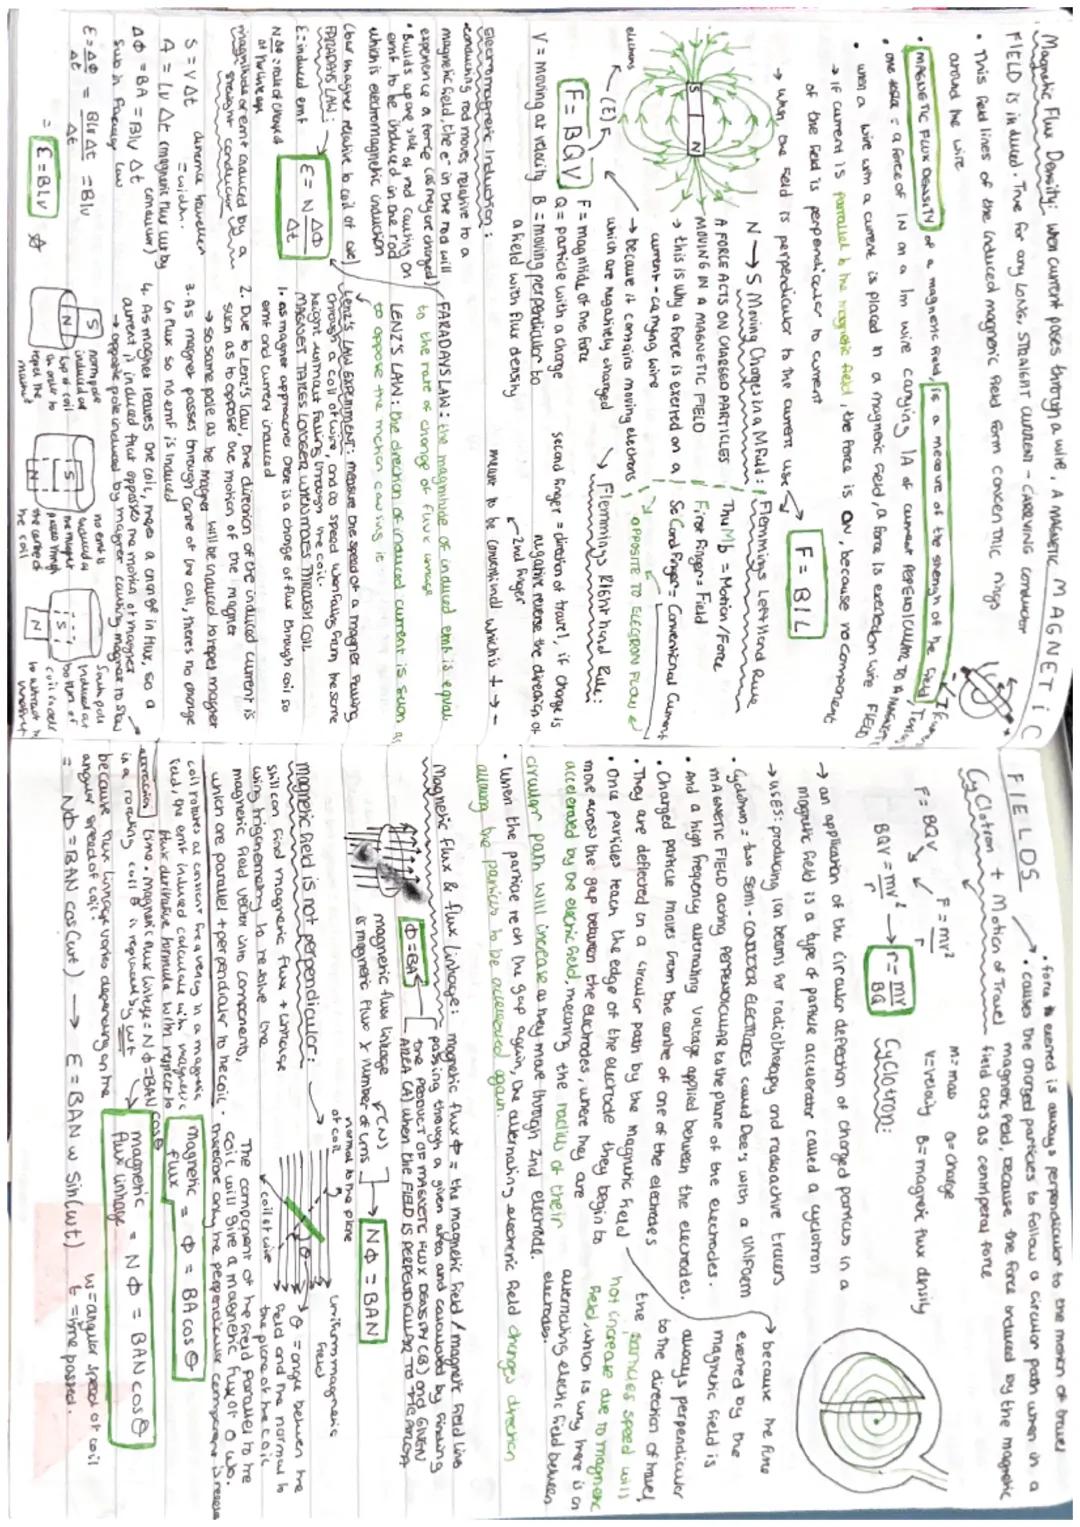 MAGNETIC FIELDS
Magnetic Flux Density: when current passes through a wire, A MAGNETIC
FIELD is induced. True for any LONG, STRAIGHT CURRENT - CARRYING conductor
• This field lines of the induced magnetic field form concentric rings
around the wire
• MAGNETIC FLUX DENSITY of a magnetic field, is a measure of the strength of the field,
• one tesla = a force of 1N on a 1m wire carrying 1A of current PERPENDICULAR TO A MAGNETIC FIELD
• when a wire with a current is placed in a magnetic field, a force is exerted on wire
→ if current is parallel to the magnetic field, the force is 0N, because no component
of the field is perpendicular to current
→ when the field is perpendicular to the current use
F = BIL
S N
N → S
Moving Charges in a M Field:
A FORCE ACTS ON CHARGED PARTICLES
MOVING IN A MAGNETIC FIELD
→ this is why a force is exerted on a
current - carrying wire
→ because it contains moving electrons
which are negatively charged
electrons
(E)
Flemmings Left Hand Rule
ThuMb = Motion/Force
First Finger = Field
SeCond Finger = Conventional Current
OPPOSITE TO ELECTRON FLOW
Flemmings Right hand Rule:
second finger = direction of travel, if charge is
negative reverse the direction of
2nd finger
F = BQV
F = magnitude of the force
Q = particle with a charge
V = moving at velocity
B = moving perpendicular to
a field with flux density
meant to be conventional which is + → -
Electromagnetic Induction:
• conducting rod moves relative to a
magnetic field, the e⁻ in the rod will
experience a force (as they are charged)
• Builds up one side of rod causing an
emf to be induced in the rod
which is electromagnetic induction
(bar magnet relative to coil of wire)
FARADAYS LAW:
ε = induced emf
ε = N ΔΦ/Δt
FARADAYS LAW: the magnitude of induced emf is equal
to the rate of change of flux linkage
LENZ'S LAW: the direction of induced current is such as
to oppose the motion causing it
Lenz's Law EXPERIMENT: measure the speed of a magnet falling
through a coil of wire, and its speed when falling from the same
height without falling through the coil.
MAGNET TAKES LONGER WHEN MOVES THROUGH COIL
1. as magnet approaches there is a change of flux through coil so
emf and current induced
2. Due to Lenz's law, the direction of the induced current is
such as to oppose the motion of the magnet
→ so same pole as the magnet will be induced to repel magnet
3. As magnet passes through centre of the coil, there's no change
in flux so no emf is induced
4. As magnet leaves the coil, there's a change in flux, so a
current is induced that opposes the motion of magnet
→ opposite pole induced by magnet causing magnet to slow
magnitude of emf induced by a
straight conductor
S = VΔt
distance travelled
= width
A = lvΔt (magnetic flux cut by
conductor)
ΔΦ = BA = BlvΔt
sub in Faradays law
ε = ΔΦ/Δt = BlvΔt/Δt = Blv
= ε = Blv
S N
north pole
induced at
top of coil
in order to
repel the
magnet
S N
no emf is
induced as
the magnet
passes through
the centre of
the coil
S N
South pole
induced at
bottom of
coil in order
to attract the
magnet
Cyclotron + Motion of Travel
• force exerted is always perpendicular to the motion of travel
• causes the charged particles to follow a circular path when in a
magnetic field, because the force induced by the magnetic
field acts as centripetal force
F = BQV
F = mv²/r
BQV = mv²/r → r = mv/BQ
M = mass Q = charge
V = velocity B = magnetic flux density
Cyclotron:
→ an application of the circular deflection of charged particles in a
magnetic field is a type of particle accelerator called a cyclotron
→ uses: producing ion beams for radiotherapy and radioactive tracers
• Cyclotron = two semi-circular ELECTRODES called Dee's with a UNIFORM
MAGNETIC FIELD acting PERPENDICULAR to the plane of the electrodes.
• And a high frequency alternating voltage applied between the electrodes.
• Charged particle moves from the centre of one of the electrodes
• They are deflected in a circular path by the magnetic field
• Once particles reach the edge of the electrode they begin to
move across the gap between the electrodes, where they are
accelerated by the electric field, meaning the radius of their
circular path will increase as they move through 2nd electrode.
• When the particle reach the gap again, the alternating electric field changes direction
allowing the particles to be accelerated again.
→ because the force
exerted by the
magnetic field is
always perpendicular
to the direction of travel
the particles speed will
not increase due to magnetic
field, which is why there is an
alternating electric field between
electrodes.
Magnetic flux & flux linkage:
magnetic flux Φ = the magnetic field / magnetic field lines
passing through a given area and calculated by finding
the PRODUCT OF MAGNETIC FLUX DENSITY (B) and GIVEN
AREA (A) when the FIELD IS PERPENDICULAR TO THE AREA
Φ = BA
magnetic flux linkage
is magnetic flux x number of turns (N)
NΦ = BAN
Magnetic field is not perpendicular:
still can find magnetic flux + linkage
using trigonometry to resolve the
magnetic field vector into components,
which are parallel + perpendicular to the coil
normal to the plane
of coil
uniform magnetic
field
coil of wire
θ = angle between the
field and the normal to
the plane of the coil
The component of the field parallel to the
coil will give a magnetic flux of 0 wb.
therefore only the perpendicular component is
magnetic flux = Φ = BA cos θ
magnetic flux linkage = NΦ = BAN cos θ
coil rotates at constant frequency in a magnetic
field, the emf induced calculated with magnetic
flux derivative formula with respect to
time. Magnetic flux linkage = NΦ = BAN cosθ
in a rotating coil θ is replaced by wt
because flux linkage varies depending on the
angular speed of coil.
= NΦ = BAN cos(wt) → E = BAN w Sin(wt)
w = angular speed of coil
t = time passed.